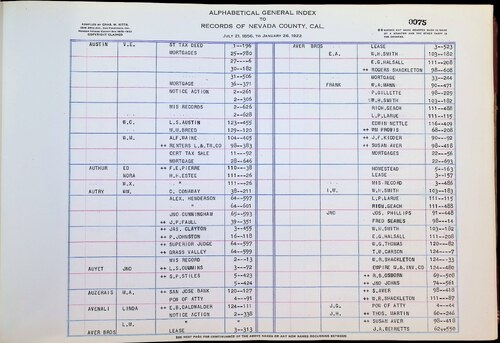 ALPHABETICAL GENERAL INDEX
TO
RECORDS OF NEVADA COUNTY, CAL.
JULY 21, 1856, TO JANUARY 28, 1922
0075
COMPILED BY CHAS. W. KITTS
COPYRIGHT CLAIMED
AUSTIN V.E. ST TAX DEED 1--196
MORTGAGES 25--780
27---6
30--182
31--506
MORTGAGE 36--371
NOTICE ACTION 2--261
2--306
MIS RECORDS 2--626
2--628
W.C. L.S. AUSTIN 123--455
W.U. BREED 129--120
W.H. ALF. RAINE 104--405
++ RENTERS L.& TR.CO 98--383
CERT TAX SALE 11---92
MORTGAGE 28--646
AUTHUR ED ++ F.E. PIERRE 110--38
NORA H.H. ESTEE 111--26
W.X. " 111--26
AUTRY WM. C. CONAWAY 38--211
ALEX. HENDERSON 64--597
" 64--601
JNO CUNNINGHAM 65--593
++ J.P. FAULL 39--351
++ JAS. CLAYTON 3--455
++ P. JOHNSTON 16--118
++ SUPERIOR JUDGE 64--597
++ GRASS VALLEY 64--599
MIS RECORD 2--13
AUVET JNO ++ L.D. CUMMINS 3--72
++ S.P. STILES 5--423
5--424
AUZERAIS W.A. ++ SAN JOSE BANK 120--127
POW OF ATTY 4--91
AVENALI LINDA ++ E.D. GALGWALDER 124--111
NOTICE ACTION 2--338
L.M. "
AVER BROS LEASE 3--313
AVER BROS LEASE 3--523
E.A. W.H. SMITH 103--182
E.G. HALSALL 111--208
++ ROGERS SHACKLETON 98--606
MORTGAGE 33--244
FRANK W.A. MANN 90--471
P. GILLETTE 98--229
W.H. SMITH 103--182
NICH. GEACH 111--488
L.P. LARUE 111--115
EDWIN NETTLE 116--409
++ WM PROWIS 68--208
++ J.F. KIDDER 90--58
++ SUSAN AVER 98--418
MORTGAGES 22--56
22--693
HOMESTEAD 5--163
LEASE 3--157
MIS RECORD 3--486
I.N. W.H. SMITH 103--183
L.P. LARUE 111--115
NICH. GEACH 111--488
JNO JOS. PHILLIPS 91--448
FRED BEANS 98--44
W.H. SMITH 103--182
E.G. HALSALL 111--208
W.G. THOMAS 120--82
T.W. CARSON 124--7
W.R. SHACKLETON 124--33
EMPIRE M.& INV. CO 124--460
++ R.B. OSBORN 69--568
++ JNO JOHNS 74--561
++ S. AVER 98--418
++ W.R. SHACKLETON 111--87
J.C. POW OF ATTY 4--44
J.H. ++ THOS. MARTIN 60--246
++ SUSAN AVER 98--418
J.A. BENNETTS 62--550